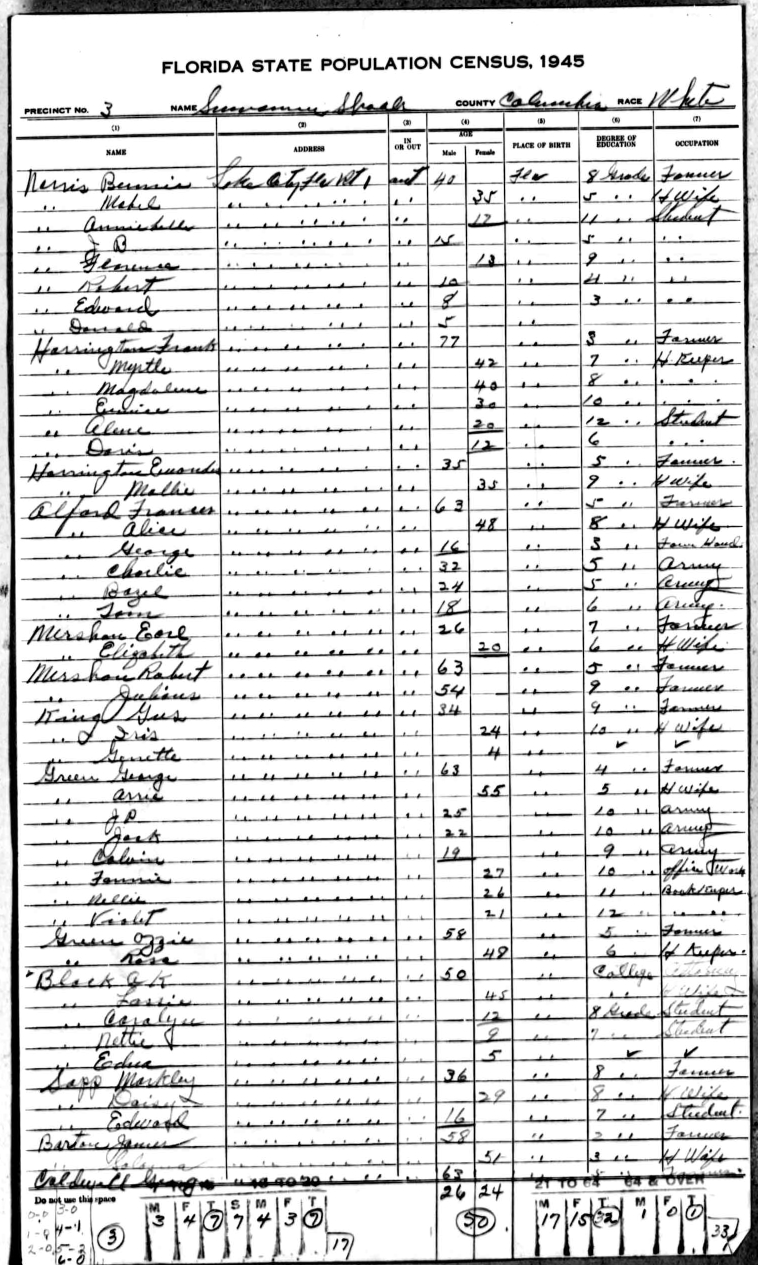 FLORIDA STATE POPULATION CENSUS, 1945
PRECINCT No. 3 NAME Suwannee Shoals COUNTY Columbia RACE White
(1) (2) (3) (4) (5) (6) (7)
NAME ADDRESS IN OR OUT AGE Male Female PLACE OF BIRTH DEGREE OF EDUCATION OCCUPATION
Norris Bennie Lake City Fla Rt 1 out 40 Fla 8 Grade Farmer
" Mabel " " " " " " 35 " 5 " H Wife
" Anniebelle " " " " " " 17 " 11 " Student
" J B " " " " " " 15 " 5 " "
" Florence " " " " " " 13 " 9 " "
" Robert " " " " " " 10 " 4 " "
" Edward " " " " " " 8 " 3 " "
" Donald " " " " " " 5 " "
Harrington Frank " " " " " " 77 3 " Farmer
" Myrtle " " " " " " 42 " 7 " H Keeper
" Magdalene " " " " " " 40 " 8 " "
" Eunice " " " " " " 30 " 10 " "
" Alene " " " " " " 20 " 12 " Student
" Doris " " " " " " 12 " 6 " "
Harrington " " " " " " 35 " 5 " Farmer
" Mallie " " " " " " 35 " 9 " H Wife
Alford Frances " " " " " " 63 " 5 " Farmer
" Alice " " " " " " 48 " 8 " H Wife
" George " " " " " " 16 " 3 " Farm Hand
" Charlie " " " " " " 32 " 5 " Army
" Bazel " " " " " " 24 " 5 " Army
" Tom " " " " " " 18 " 6 " Army
Mershon Earl " " " " " " 26 " 7 " Farmer
" Elizabeth " " " " " " 20 " 6 " H Wife
Mershon Robert " " " " " " 63 " 5 " Farmer
" Julious " " " " " " 54 " 9 " Farmer
King Gus " " " " " " 34 " 9 " Farmer
" Iris " " " " " " 24 " 10 " H Wife
" Genette " " " " " " 4 " ✓ ✓
Green George " " " " " " 63 " 4 " Farmer
" Arrie " " " " " " 55 " 5 " H Wife
" J P " " " " " " 25 " 10 " Army
" Jack " " " " " " 22 " 10 " Army
" Calvin " " " " " " 19 " 9 " Army
" Fannie " " " " " " 27 " 10 " Office Work
" Nellie " " " " " " 26 " 11 " Bookkeeper
" Violet " " " " " " 21 " 12 " " "
Green Ozzie " " " " " " 58 " 5 " Farmer
" Rosa " " " " " " 48 " 6 " H Keeper
Black A K " " " " " " 50 " College
" " " " " " " 45 " " H Wife
" Carolyn " " " " " " 12 " 8 Grade Student
" Nettie " " " " " " 9 " 7 " Student
" Edna " " " " " " 5 " ✓ ✓
Sapp Markley " " " " " " 36 " 8 " Farmer
" Daisy " " " " " " 29 " 8 " H Wife
" Edward " " " " " " 16 " 7 " Student
Barton James " " " " " " 58 " 2 " Farmer
" " " " " " " 51 " 3 " H Wife
Caldwell George " " " " " " 63 " 5 "
Do not use this space 18 TO 20 26 24 21 TO 64 64 & OVER
0-0 3-0
1-9 4-1
2-0 5-3
6-0
3 M 3 F 4 T 7 S 7 M 4 F 3 T 7 17 50 M 17 F 15 T 32 M 1 F 0 T 1 33